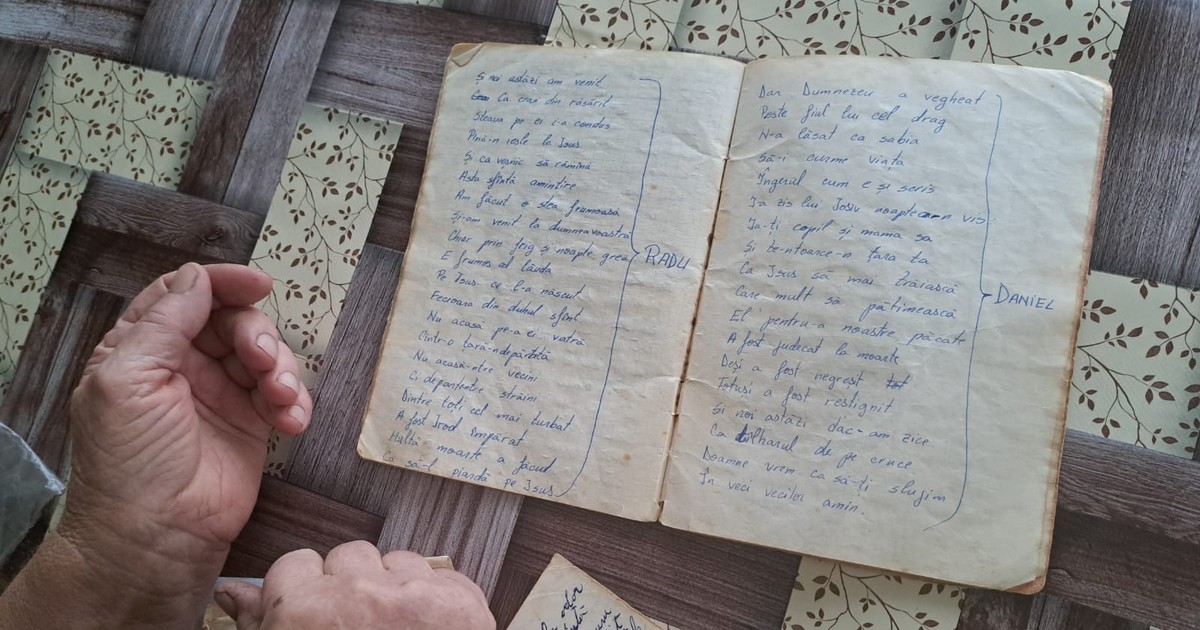 Și noi astăzi am venit
Ca crai din răsărit
Steaua pe ei i-a condus
Pînă-n iesle la Isus
Și ca veșnic să rămînă
Asta sfîntă amintire
Am făcut o stea frumoasă
Și-am venit la dumneavoastră
Chiar prin frig și noapte grea
E frumos al lăuda
Pe Isus ce l-a născut
Fecioara din duhul sfînt
Nu acasă pe-a ei vatră
Cintr-o țară-ndepărtată
Nu acasă-ntre vecini
Ci departe-ntre străini
Dintre toți cel mai turbat
A fost Irod împărat
Multă moarte a făcut
Ca să-l piardă pe Isus
RADU
Dar Dumnezeu a vegheat
Peste fiul lui cel drag
N-a lăsat ca sabia
Să-i curme viața
Îngerul cum e și scris
I-a zis lui Iosiv noaptea-n vis
Ia-ți copil și mama sa
Și te-ntoarce-n țara ta
Ca Isus să mai trăiască
Care mult să pătimească
El pentru-a noastre păcate
A fost judecat la moarte
Deși a fost negreșit
Totuși a fost restignit
Și noi astăzi dac-am zice
Ca tîlharul de pe cruce
Doamne vrem ca să-ți slujim
În veci vecilor amin.
DANIEL